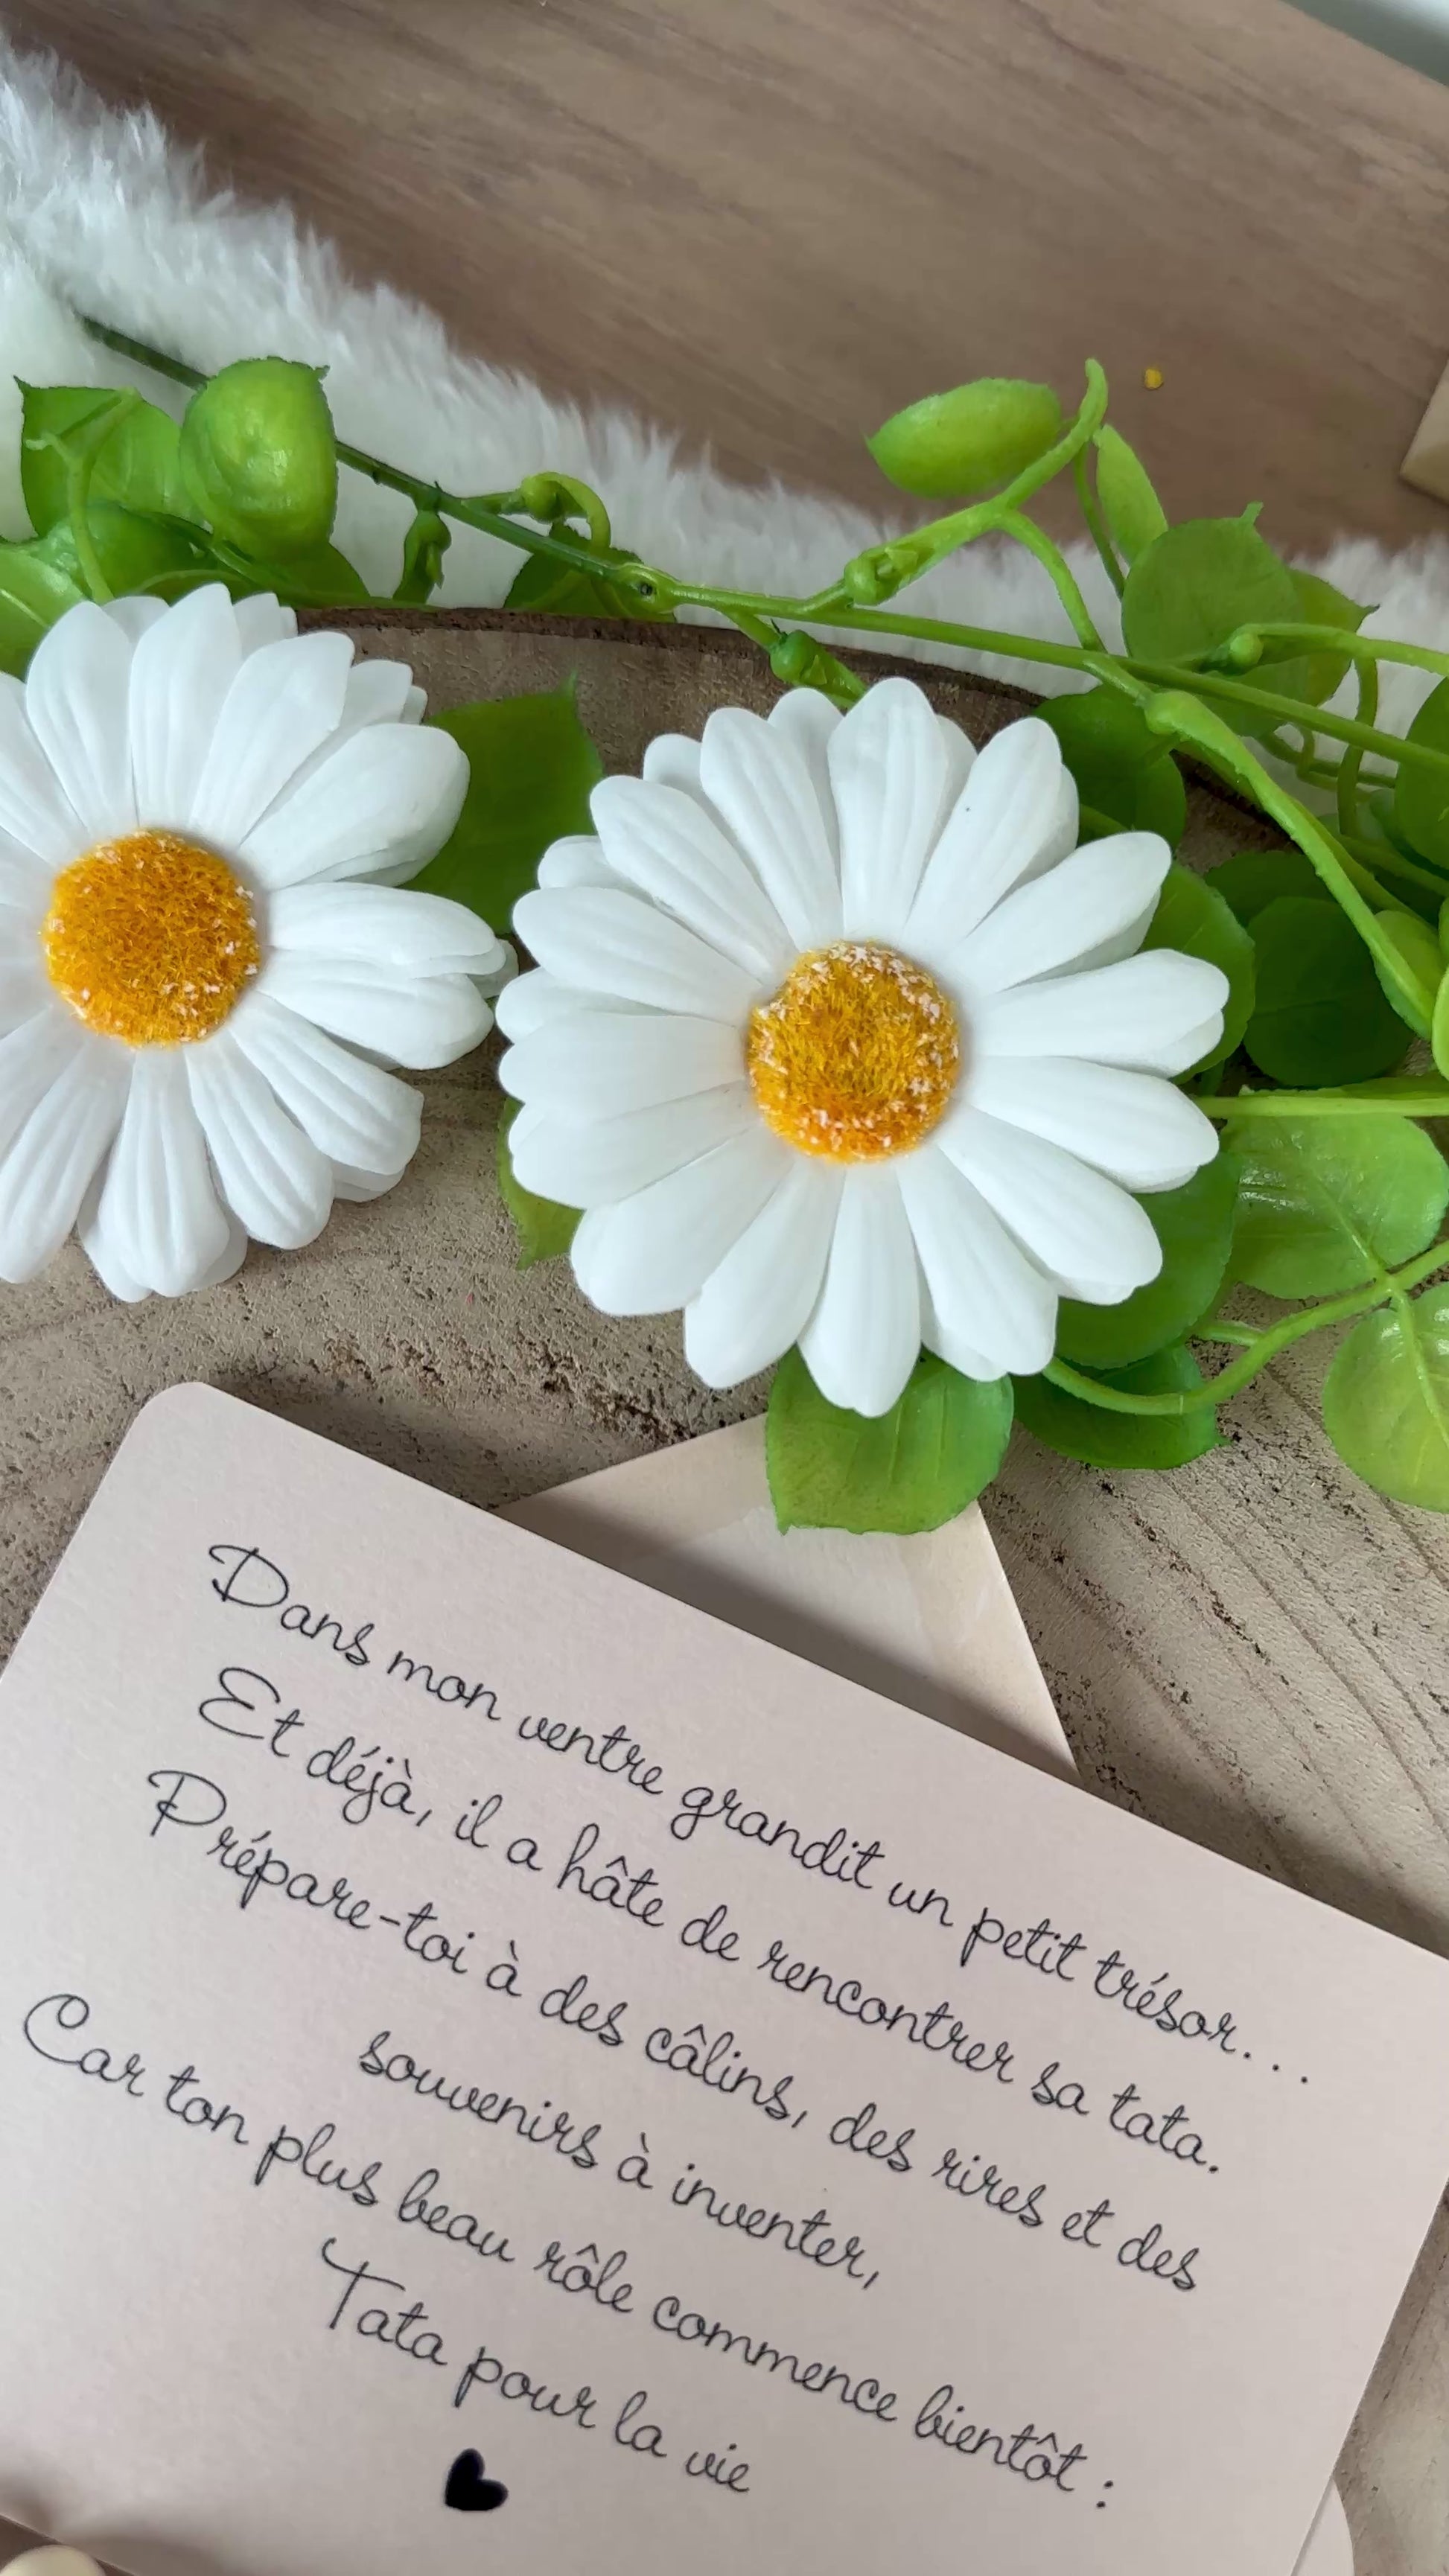 Dans mon ventre grandit un petit trésor...
Et déjà, il a hâte de rencontrer sa tata.
Prépare-toi à des câlins, des rires et des
souvenirs à inventer,
Car ton plus beau rôle commence bientôt :
Tata pour la vie